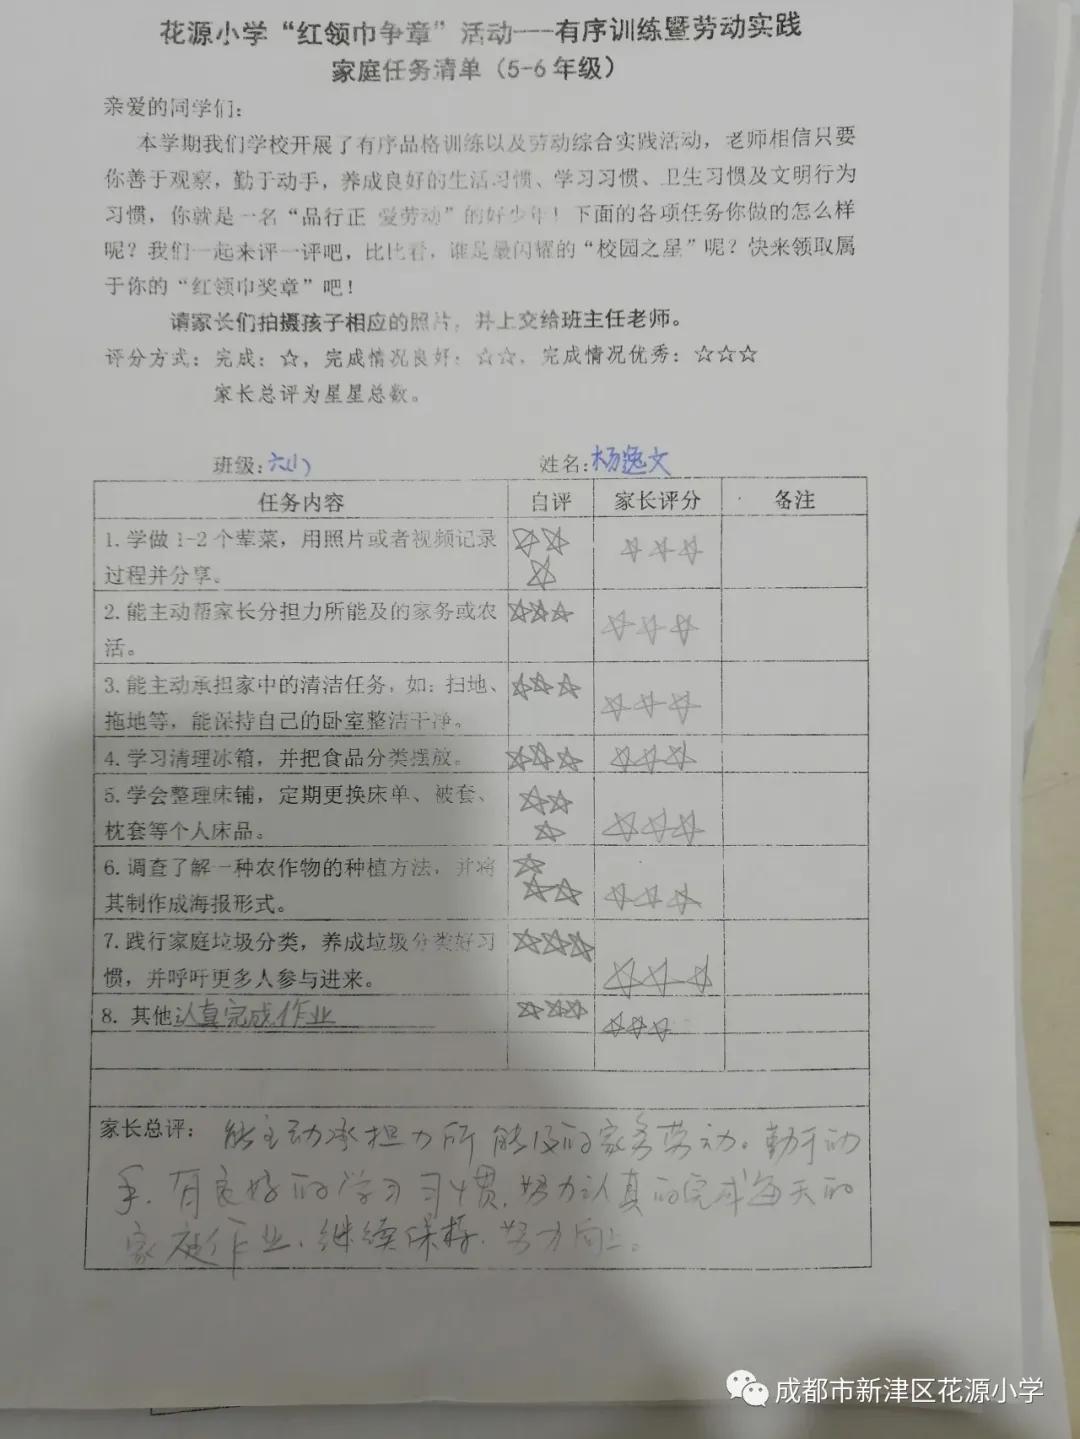 花源小学“红领巾争章”活动---有序训练暨劳动实践
家庭任务清单（5-6 年级）
亲爱的同学们：
本学期我们学校开展了有序品格训练以及劳动综合实践活动，老师相信只要
你善于观察，勤于动手，养成良好的生活习惯、学习习惯、卫生习惯及文明行为
习惯，你就是一名“品行正 爱劳动”的好少年！下面的各项任务你做的怎么样
呢？我们一起来评一评吧，比比看，谁是最闪耀的“校园之星”呢？快来领取属
于你的“红领巾奖章”吧！
请家长们拍摄孩子相应的照片，并上交给班主任老师。
评分方式：完成：☆，完成情况良好：☆☆，完成情况优秀：☆☆☆
家长总评为星星总数。
班级：六(1) 姓名：杨逸文
任务内容 自评 家长评分 备注
1. 学做 1-2 个荤菜，用照片或者视频记录 ☆☆ ☆☆☆
过程并分享。 ☆
2. 能主动帮家长分担力所能及的家务或农 ☆☆☆ ☆☆☆
活。
3. 能主动承担家中的清洁任务，如：扫地、 ☆☆☆ ☆☆☆
拖地等，能保持自己的卧室整洁干净。
4. 学习清理冰箱，并把食品分类摆放。 ☆☆☆ ☆☆☆
5. 学会整理床铺，定期更换床单、被套、 ☆☆
枕套等个人床品。 ☆ ☆☆☆
6. 调查了解一种农作物的种植方法，并将 ☆
其制作成海报形式。 ☆☆ ☆☆☆
7. 践行家庭垃圾分类，养成垃圾分类好习 ☆☆☆
惯，并呼吁更多人参与进来。 ☆☆☆
8. 其他认真完成作业 ☆☆☆ ☆☆☆
家长总评： 能主动承担力所能及的家务劳动。勤于动
手，有良好的学习习惯，努力认真的完成每天的
家庭作业，继续保持，努力向上。
成都市新津区花源小学